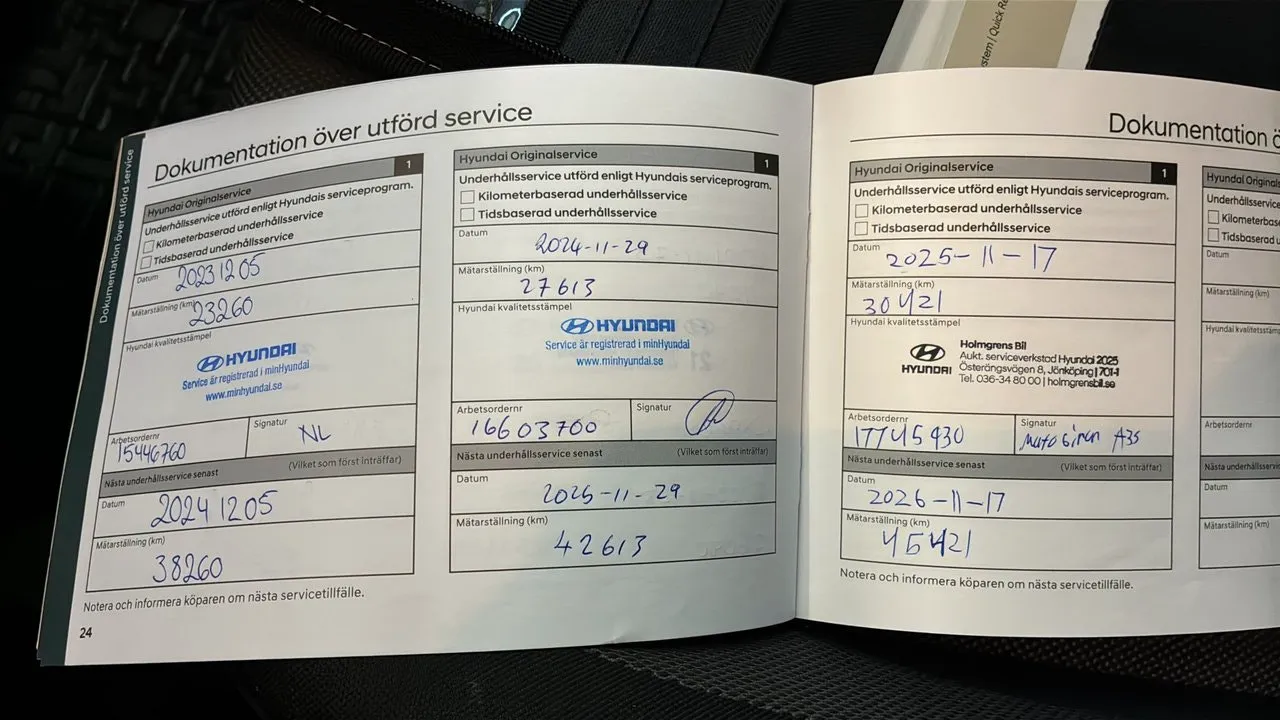 Dokumentation över utförd service
Dokumentation över utförd service
Hyundai Originalservice 1
Underhållsservice utförd enligt Hyundais serviceprogram.
Kilometerbaserad underhållsservice
Tidsbaserad underhållsservice
Datum
20231205
Mätarställning (km)
23260
Hyundai kvalitetsstämpel
HYUNDAI
Service är registrerad i minHyundai
www.minhyundai.se
Arbetsordernr
15446760
Signatur
NL
Nästa underhållsservice senast (Vilket som först inträffar)
Datum
20241205
Mätarställning (km)
38260
Notera och informera köparen om nästa servicetillfälle.
24
Hyundai Originalservice 1
Underhållsservice utförd enligt Hyundais serviceprogram.
Kilometerbaserad underhållsservice
Tidsbaserad underhållsservice
Datum
2024-11-29
Mätarställning (km)
27613
Hyundai kvalitetsstämpel
HYUNDAI
Service är registrerad i minHyundai
www.minhyundai.se
Arbetsordernr
16603700
Signatur
Nästa underhållsservice senast (Vilket som först inträffar)
Datum
2025-11-29
Mätarställning (km)
42613
Dokumentation
Hyundai Originalservice 1
Underhållsservice utförd enligt Hyundais serviceprogram.
Kilometerbaserad underhållsservice
Tidsbaserad underhållsservice
Datum
2025-11-17
Mätarställning (km)
30421
Hyundai kvalitetsstämpel
HYUNDAI
Holmgrens Bil
Aukt. serviceverkstad Hyundai 2025
Österängsvägen 8, Jönköping | 701-1
Tel. 036-34 80 00 | holmgrensbil.se
Arbetsordernr
17745430
Signatur
Nästa underhållsservice senast (Vilket som först inträffar)
Datum
2026-11-17
Mätarställning (km)
45421
Notera och informera köparen om nästa servicetillfälle.
Hyundai
Underhållsservice
Datum
Mätarställning (km)
Hyundai
Arbetsordernr
Nästa
Datum
Mätarställning (km)
Quick